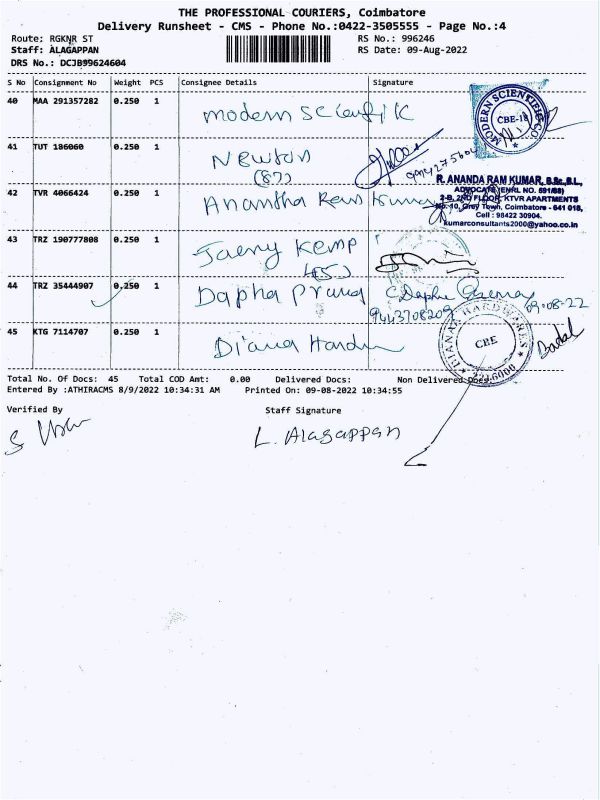 THE PROFESSIONAL COURIERS, Coimbatore
Delivery Runsheet - CMS - Phone No.:0422-3505555 - Page No.:4
Route: RGKNR ST
RS No.: 996246
Staff: ALAGAPPAN
RS Date: 09-Aug-2022
DRS No.: DCJB99624604
S No Consignment No Weight PCS Consignee Details Signature
40 MAA 291357282 0.250 1 modern Scientific
MODERN SCIENTIFIC CO
CBE-18
41 TUT 186060 0.250 1 Newton
(87)
R. ANANDA RAM KUMAR, B.Sc.,B.L.,
ADVOCATE (ENRL NO. 591/88)
2-B, 2ND FLOOR, KTVR APARTMENTS
No.10, Grey Town, Coimbatore - 641 018,
Cell : 98422 30904.
kumarconsultants2000@yahoo.co.in
42 TVR 4066424 0.250 1 Anantha Ram Kumar
43 TRZ 190777808 0.250 1 Kemp
44 TRZ 35444907 0.250 1 Dapha
C. Daphne
9443708209
09-08-22
45 KTG 7114707 0.250 1 Diana
DIANA HARDWARES
CBE
Total No. Of Docs: 45 Total COD Amt: 0.00 Delivered Docs: Non Delivered Docs:
Entered By :ATHIRACMS 8/9/2022 10:34:31 AM Printed On: 09-08-2022 10:34:55
Verified By
Staff Signature
L. Alagappan